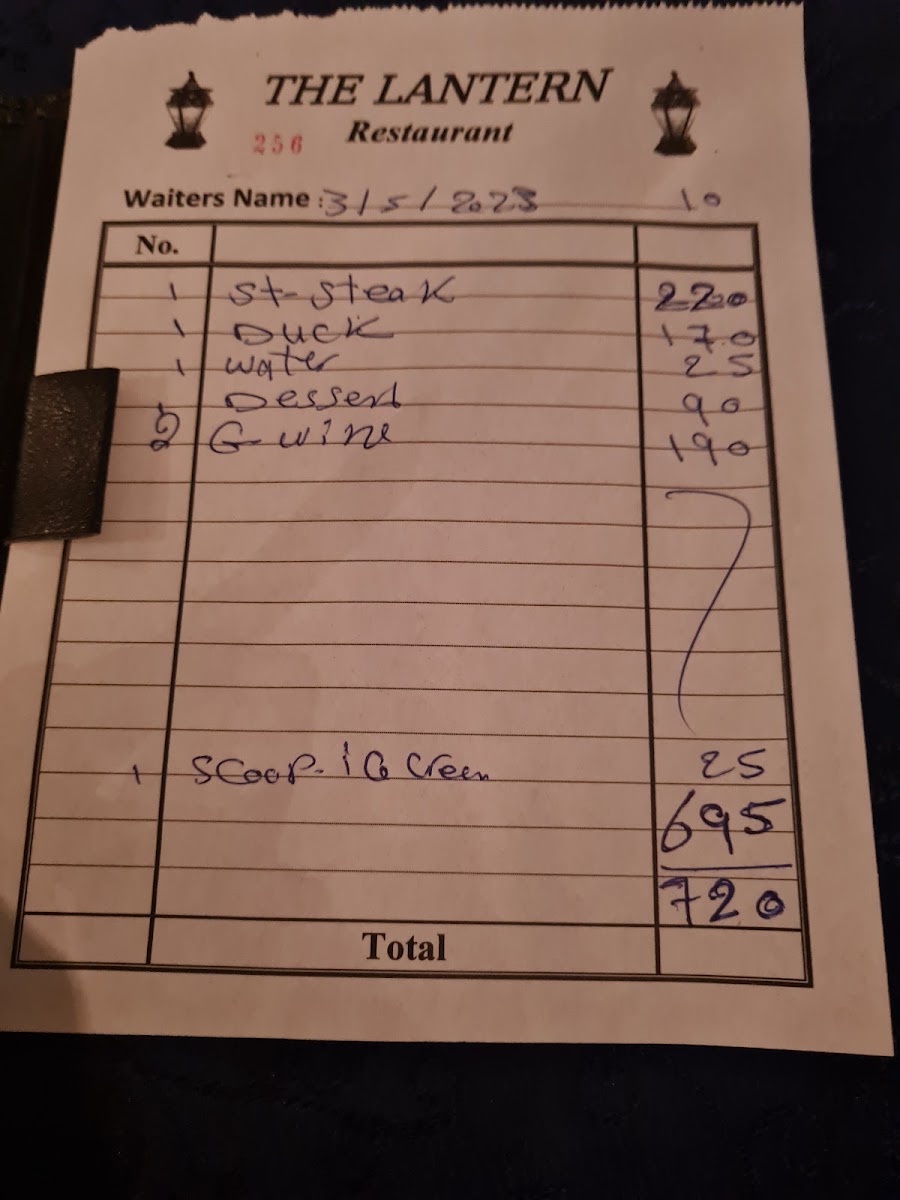 THE LANTERN
256 Restaurant
Waiters Name : 3/5/2023 10
No.
1 St-Steak 220
1 Duck 170
1 water 25
Dessert 90
2 G-wine 190
1 Scoop-ice creem 25
695
720
Total